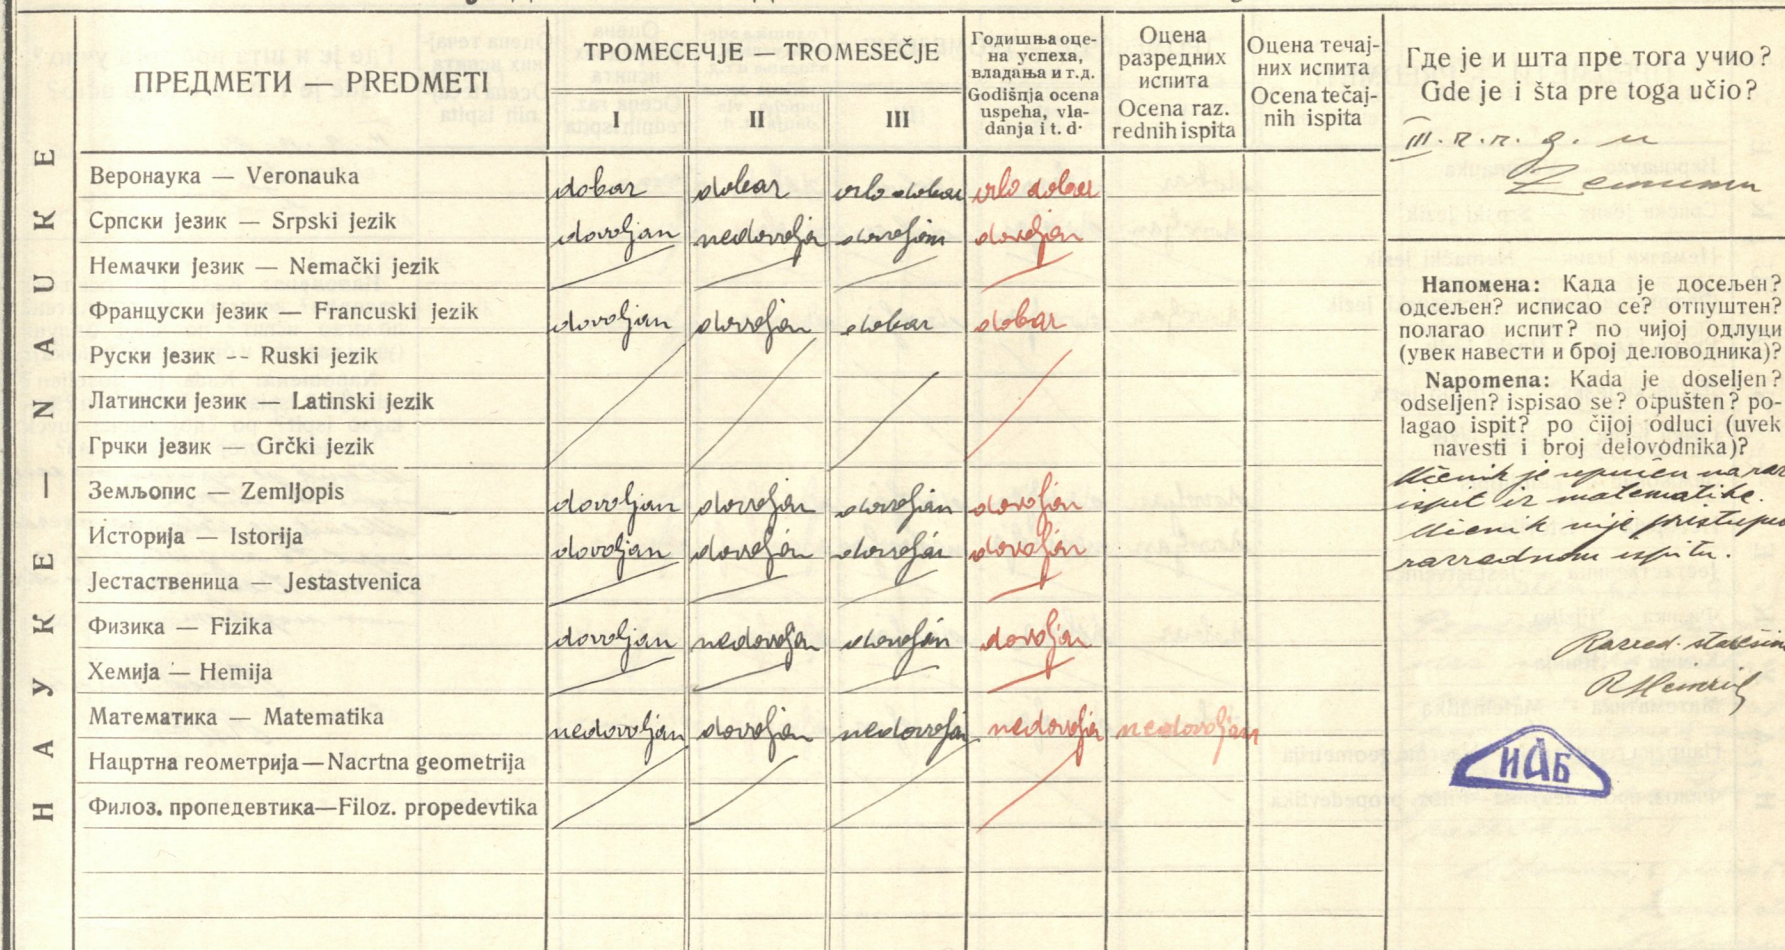 ПРЕДМЕТИ — PREDMETI
ТРОМЕСЕЧЈЕ — TROMESEČJE
I II III
Годишња оце-
на успеха,
владања и т.д.
Godišnja ocena
uspeha, vla-
danja i t. d.
Оцена
разредних
испита
Ocena raz.
rednih ispita
Оцена течај-
них испита
Ocena tečaj-
nih ispita
Где је и шта пре тога учио?
Gde je i šta pre toga učio?
III. r. r. g. u
Zemunu
НАУКЕ — NAUKE
Веронаука — Veronauka dobar dobar vrlo dobar vrlo dobar
Српски језик — Srpski jezik dovoljan nedovolja dovoljan dovoljan
Немачки језик — Nemački jezik
Француски језик — Francuski jezik dovoljan dovoljan dobar dobar
Руски језик -- Ruski jezik
Латински језик — Latinski jezik
Грчки језик — Grčki jezik
Земљопис — Zemljopis dovoljan dovoljan dovoljan dovoljan
Историја — Istorija dovoljan dovoljan dovoljan dovoljan
Јестаственица — Jestastvenica
Физика — Fizika dovoljan nedovoljan dovoljan dovoljan
Хемија — Hemija
Математика — Matematika nedovoljan dovoljan nedovoljan nedovolja nedovoljan
Нацртна геометрија—Nacrtna geometrija
Филоз. пропедевтика—Filoz. propedevtika
Напомена: Када је досељен?
одсељен? исписао се? отпуштен?
полагао испит? по чијој одлуци
(увек навести и број деловодника)?
Napomena: Kada je doseljen?
odseljen? ispisao se? otpušten? po-
lagao ispit? po čijoj odluci (uvek
navesti i broj delovodnika)?
Učenik je upućen na raz
ispit iz matematike.
Učenik nije pristupio
razrednom ispitu.
Razred. starešina
ИАБ